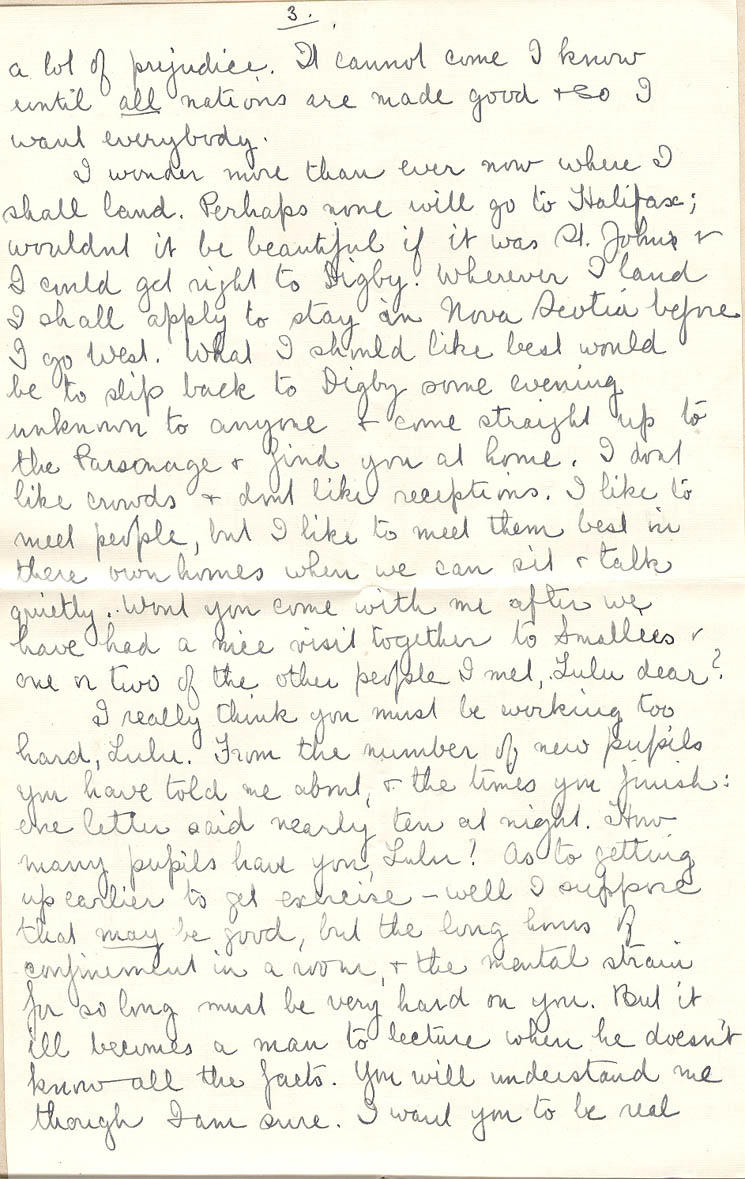 3.
a lot of prejudice. It cannot come I know
until all nations are made good + so I
want everybody.
I wonder more than ever now where I
shall land. Perhaps none will go to Halifax;
wouldnt it be beautiful if it was St. John's +
I could get right to Digby. Wherever I land
I shall apply to stay in Nova Scotia before
I go West. What I should like best would
be to slip back to Digby some evening
unknown to anyone + come straight up to
the Parsonage + find you at home. I dont
like crowds + dont like receptions. I like to
meet people, but I like to meet them best in
there own homes when we can sit + talk
quietly. Wont you come with me after we
have had a nice visit together to Smallees +
one or two of the other people I met, Lulu dear?
I really think you must be working too
hard, Lulu. From the number of new pupils
you have told me about, + the times you finish:
one letter said nearly ten at night. How
many pupils have you, Lulu? As to getting
up earlier to get exercise - well I suppose
that may be good, but the long hours of
confinement in a room, + the mental strain
for so long must be very hard on you. But it
ill becomes a man to lecture when he doesn't
know all the facts. You will understand me
though I am sure. I want you to be real